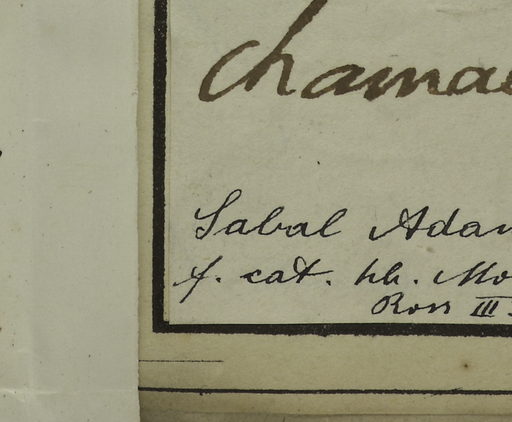 chamae
Sabal Adan
f. cat. hh. Mo
Ross III.